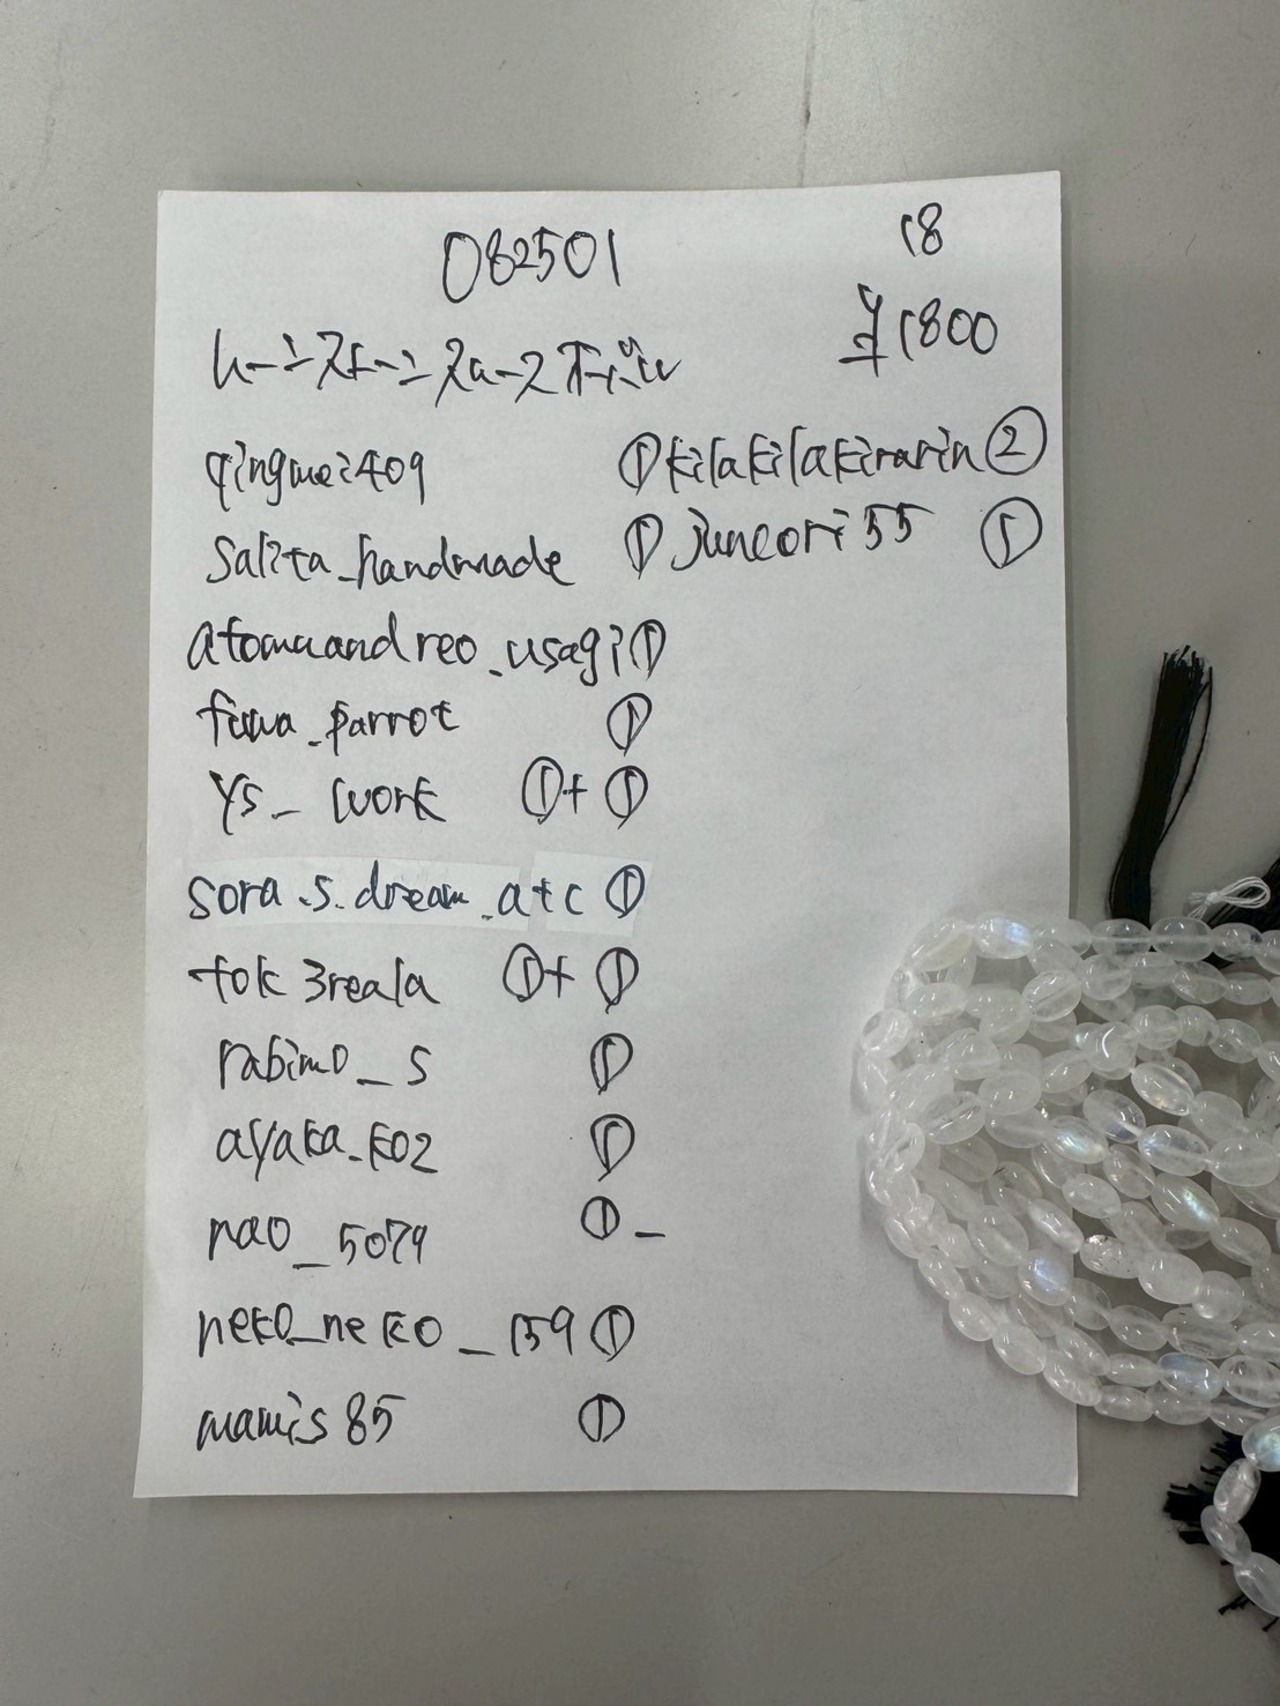 082501
18
¥1800
qingmei409 ①
kilakilakirarin ②
salita_handmade ①
juneori55 ①
atomuandreo_usagi ①
fuwa_parrot ①
ys_work ①+①
sora.s.dream_atc ①
tok3reala ①+①
rabimo_s ①
ayaka_k02 ①
nao_5079 ①-
neko_neko_159 ①
mamis85 ①